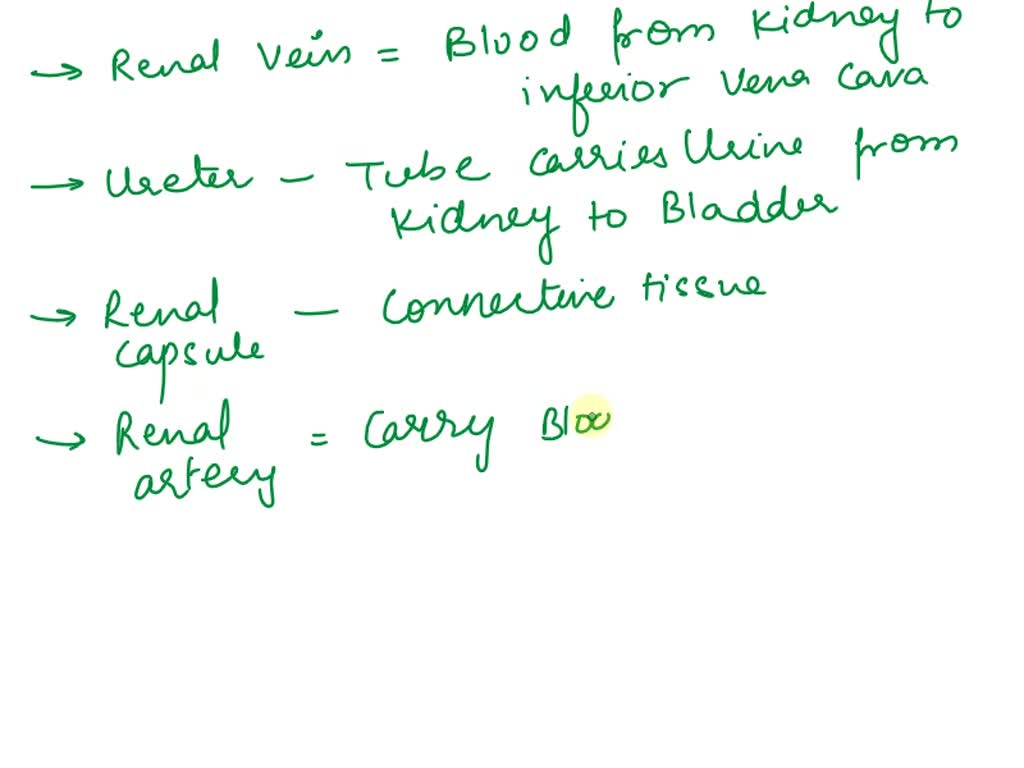 → Renal Vein = Blood from kidney to
inferior Vena Cava
→ Ureter — Tube carries Urine from
kidney to Bladder
→ Renal — Connective tissue
capsule
→ Renal = Carry Bloo
artery